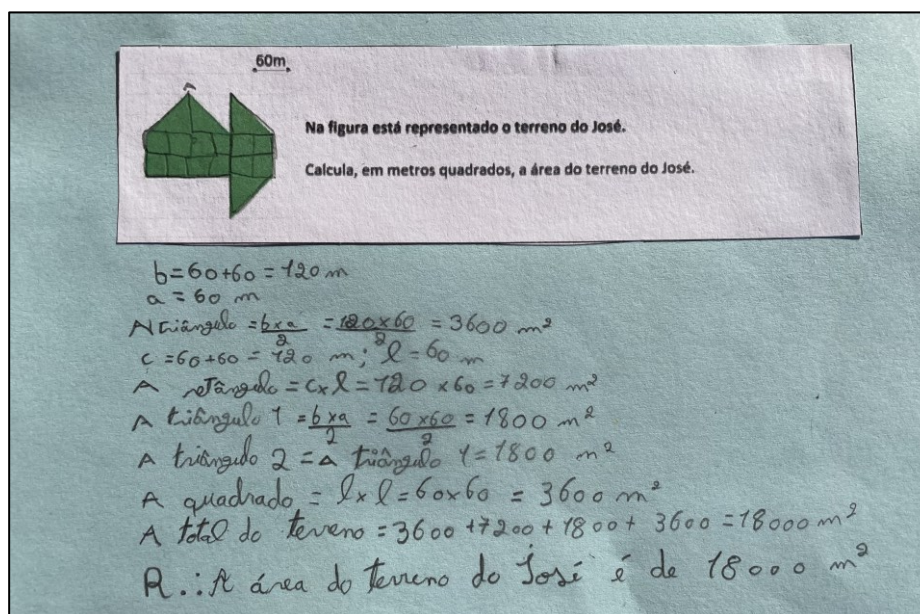 60m
Na figura está representado o terreno do José.
Calcula, em metros quadrados, a área do terreno do José.
b=60+60=120 m
a = 60 m
A triângulo = b×a/2 = 120×60/2 = 3600 m²
c = 60+60 = 120 m; l = 60 m
A retângulo = c×l = 120×60 = 7200 m²
A triângulo 1 = b×a/2 = 60×60/2 = 1800 m²
A triângulo 2 = A triângulo 1 = 1800 m²
A quadrado = l×l = 60×60 = 3600 m²
A total do terreno = 3600+7200+1800+3600 = 18000 m²
R.: A área do terreno do José é de 18000 m²